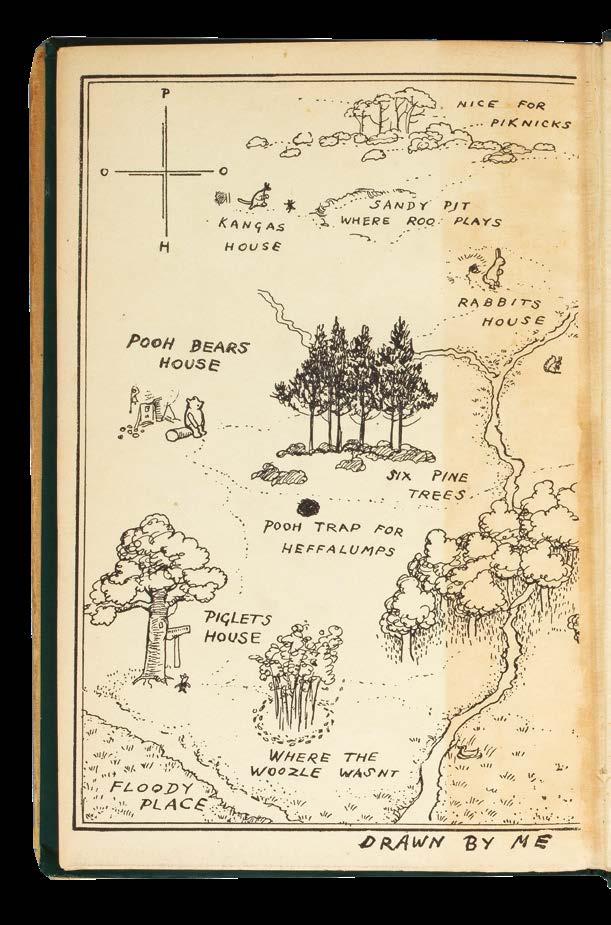 P
NICE FOR
PIKNICKS
O O
SANDY PIT
WHERE ROO PLAYS
KANGAS
HOUSE
H
RABBITS
HOUSE
POOH BEARS
HOUSE
SIX PINE
TREES
POOH TRAP FOR
HEFFALUMPS
PIGLETS
HOUSE
WHERE THE
WOOZLE WASNT
FLOODY
PLACE
DRAWN BY ME